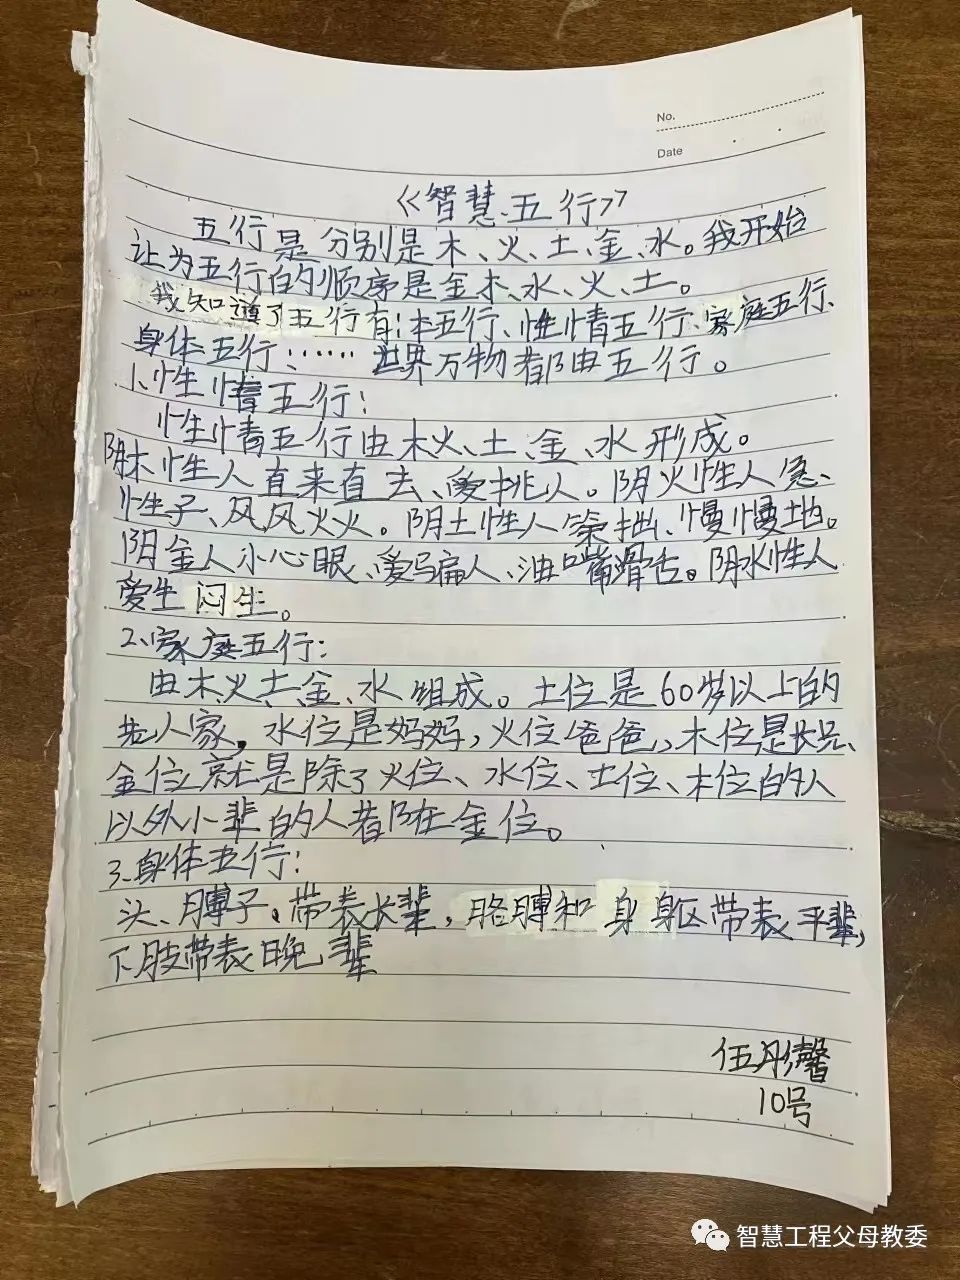 No.
Date
《智慧五行》
五行是分别是木、火、土、金、水。我开始
让为五行的顺序是金木、水、火、土。
我知道了五行有:本五行、性情五行、家庭五行、
身体五行:…… 世界万物都由五行。
1、性情五行:
性情五行由木火、土、金、水形成。
阴木性人直来直去、爱挑人。阴火性人急、
性子、风风火火。阴土性人笨拙、慢慢地。
阴金人小心眼、爱骗人、油嘴滑舌。阴水性人
爱生闷生。
2、家庭五行:
由木、火、土、金、水组成。土位是60岁以上的
老人家。水位是妈妈,火位爸爸,木位是长兄、
金位就是除了火位、水位、土位、木位的人
以外小辈的人都在金位。
3、身体五行:
头、脖子。带表长辈,胳膊和身身区带表平辈,
下肢带表晚辈
伍彤馨
10号
智慧工程父母教委